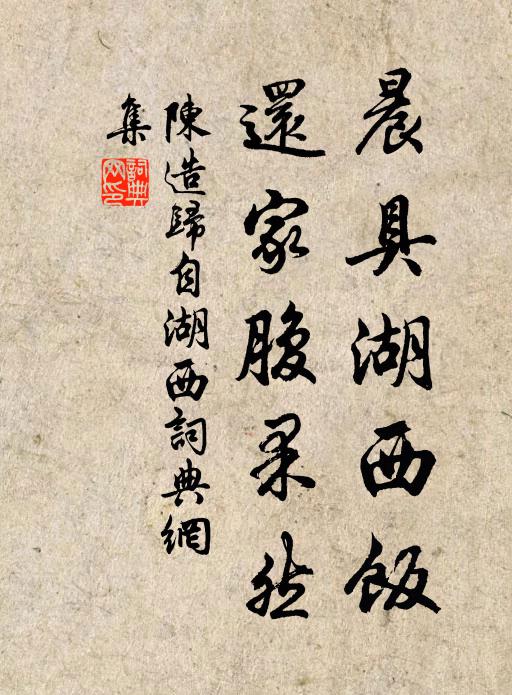 晨具湖西飯
還家腹果然
陳造歸自湖西詞典網
集
詞典網印